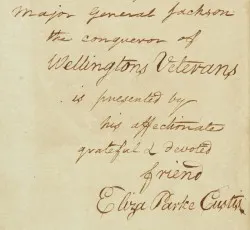 Major General Jackson
the conqueror of
Wellingtons Veterans
is presented by
his affectionate
grateful & devoted
friend
Eliza Parke Custis